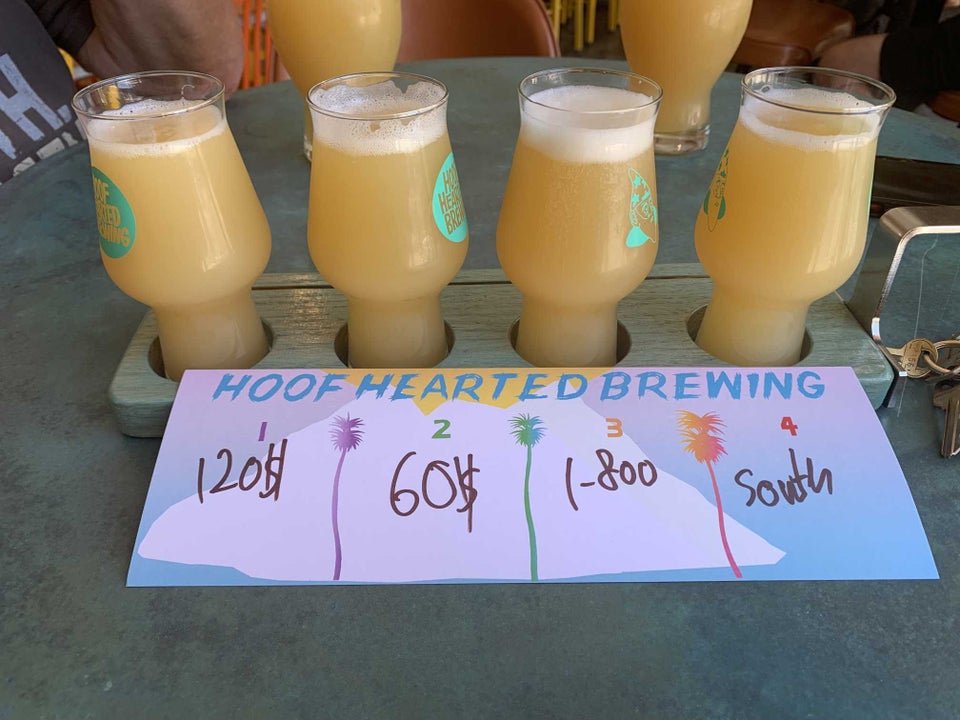 HOOF
HEARTED
BREWING
HOOF HEARTED BREWING
1 2 3 4
120$ 60$ 1-800 South